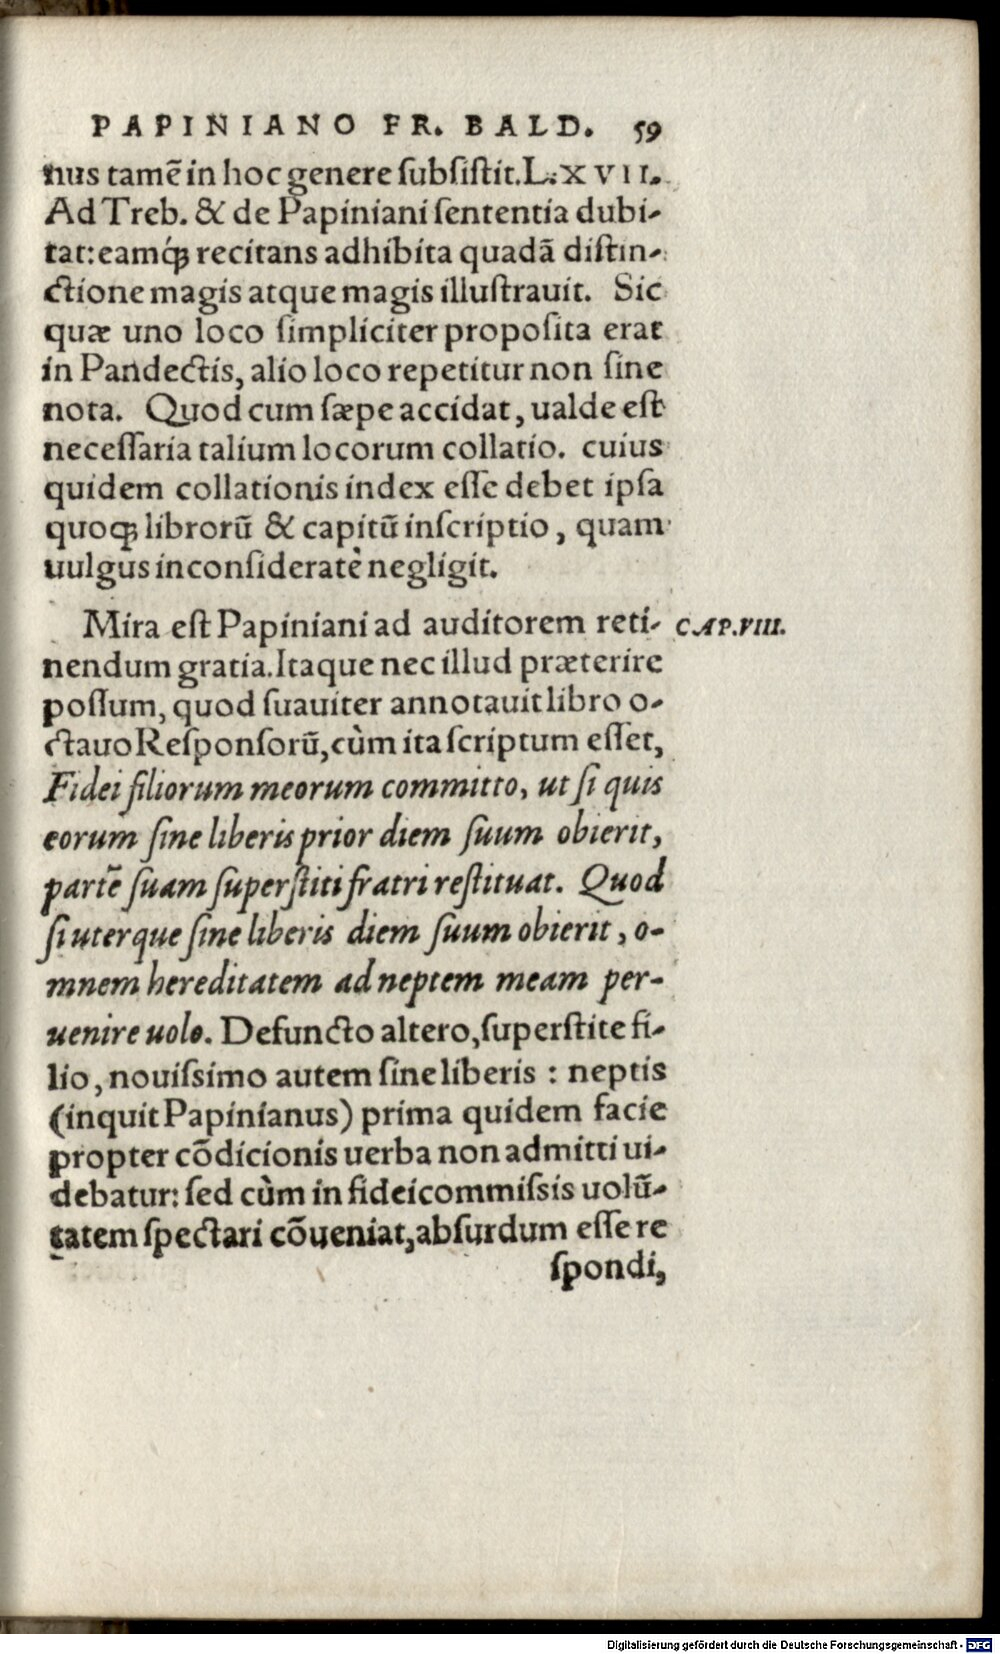 PAPINIANO FR. BALD. 59
nus tamē in hoc genere subsistit. L. XVII.
Ad Treb. & de Papiniani sententia dubi-
tat: eamq́; recitans adhibita quadā distin-
ctione magis atque magis illustrauit. Sic
quæ uno loco simpliciter proposita erat
in Pandectis, alio loco repetitur non sine
nota. Quod cum sæpe accidat, ualde est
necessaria talium locorum collatio. cuius
quidem collationis index esse debet ipsa
quoq; librorū & capitū inscriptio, quam
uulgus inconsideratè negligit.
Mira est Papiniani ad auditorem reti-
CAP. VIII.
nendum gratia. Itaque nec illud præterire
possum, quod suauiter annotauit libro o-
ctauo Responsorū, cùm ita scriptum esset,
Fidei filiorum meorum committo, ut si quis
eorum sine liberis prior diem suum obierit,
partē suam superstiti fratri restituat. Quod
si uterque sine liberis diem suum obierit, o-
mnem hereditatem ad neptem meam per-
uenire uolo. Defuncto altero, superstite fi-
lio, nouissimo autem sine liberis : neptis
(inquit Papinianus) prima quidem facie
propter cōdicionis uerba non admitti ui-
debatur: sed cùm in fideicommissis uolū-
tatem spectari cōueniat, absurdum esse re
spondi,
Digitalisierung gefördert durch die Deutsche Forschungsgemeinschaft - DFG